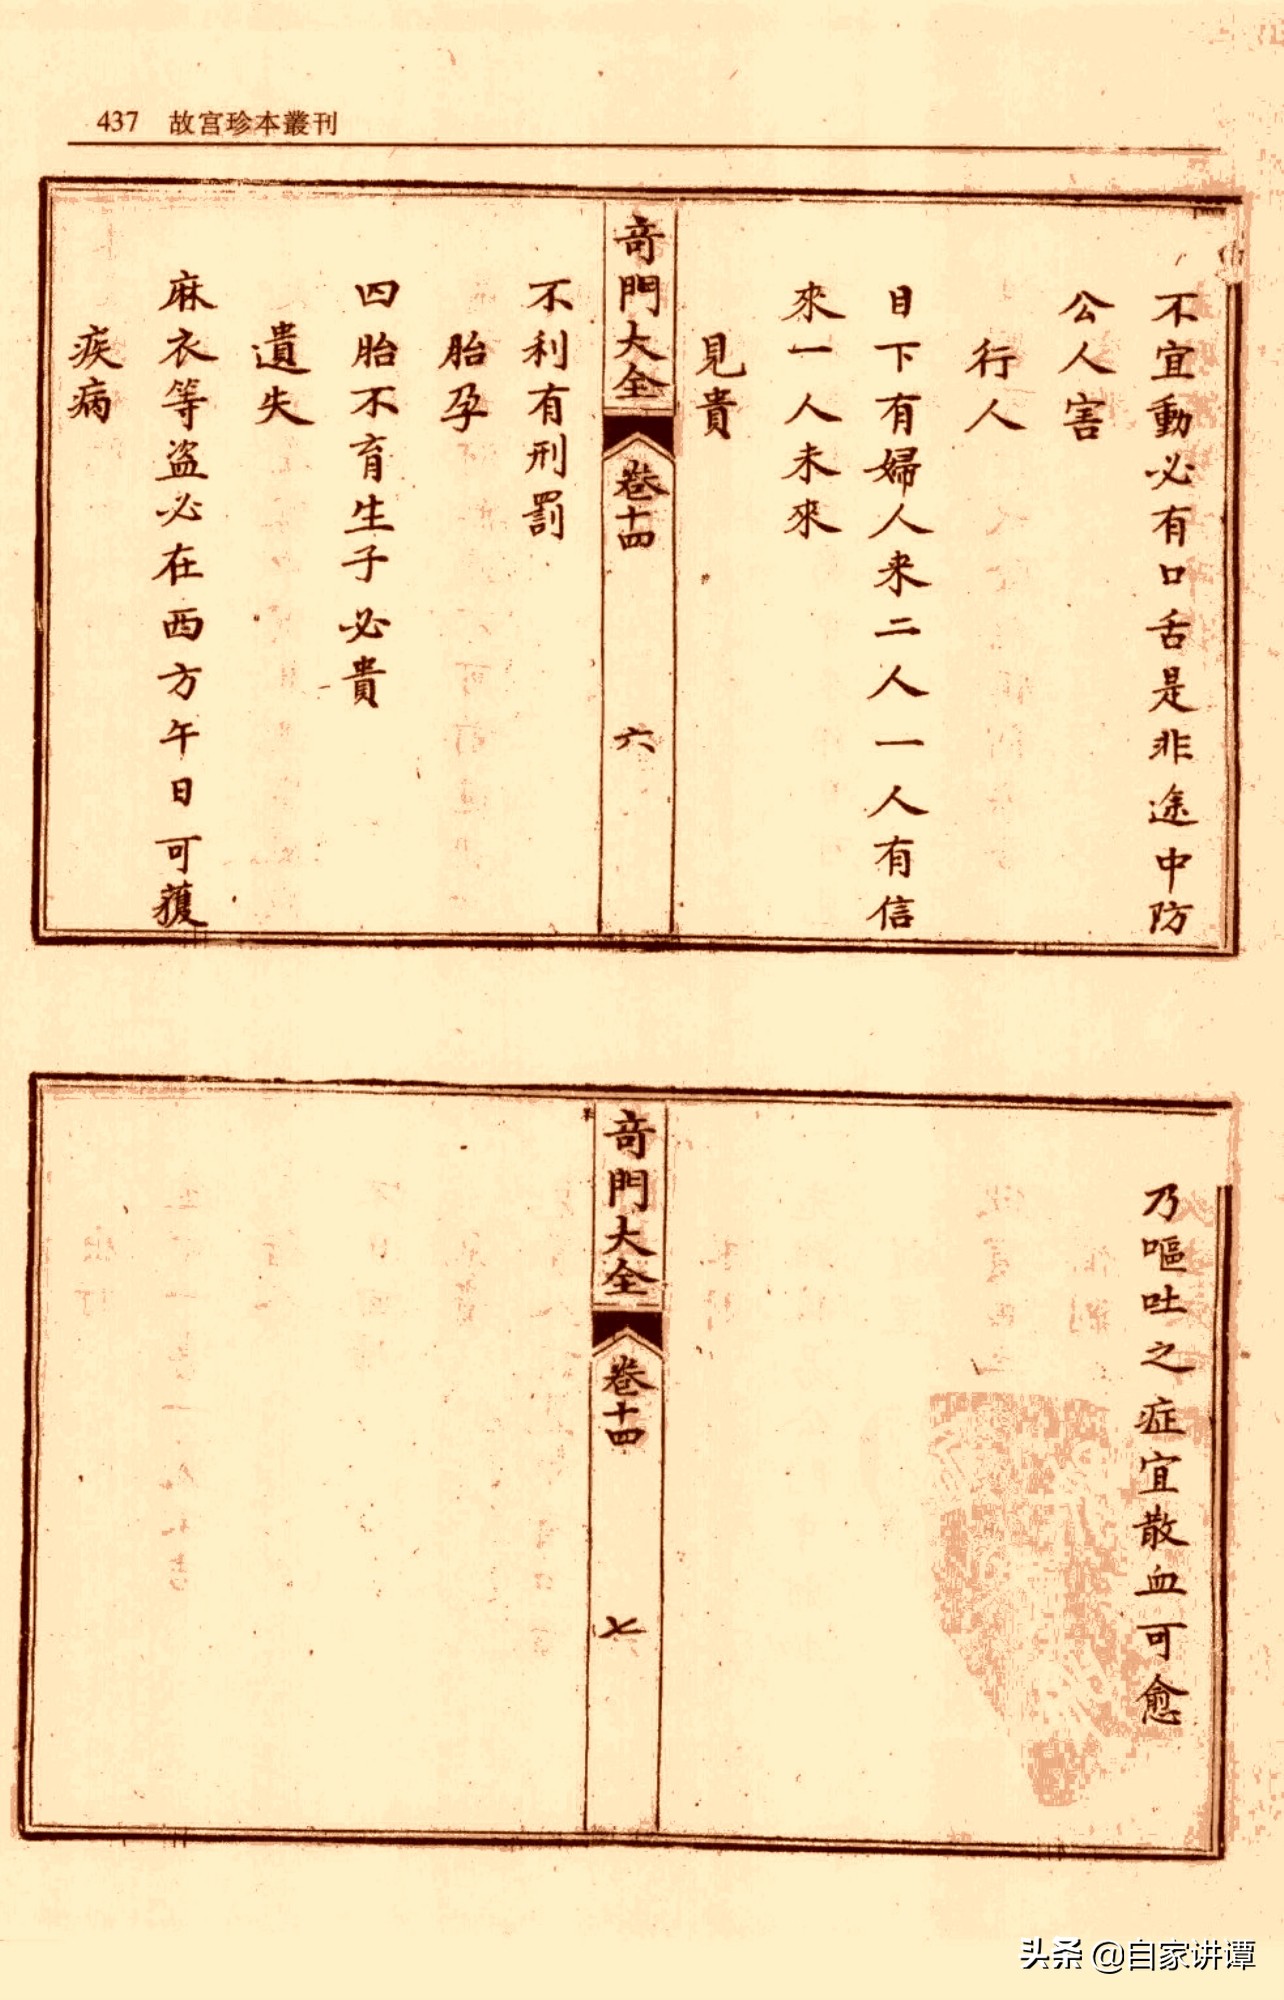 437 故宫珍本叢刊
不宜動必有口舌是非途中防
公人害
行人
目下有婦人来二人一人有信
來一人未來
見貴
奇門大全 卷十四 六
不利有刑罰
胎孕
四胎不育生子必貴
遺失
麻衣等盗必在西方午日可獲
疾病
乃嘔吐之症宜散血可愈
奇門大全 卷十四 七
头条 @自家讲谭